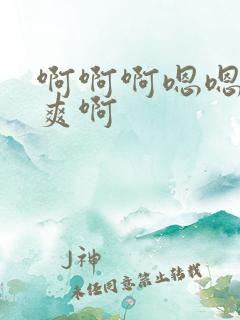 啊啊啊嗯嗯
爽啊
J神
未经同意禁止转载